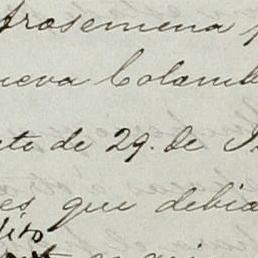 trosemena p
ueva Colomb
te de 29. de I
es que debia